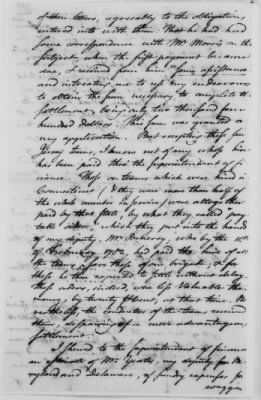 of their teams, agreeably to the Obligations
entered into with them. That he had had
some correspondence with Mr Morris on the
subject, when the first payment became
due, I received from him
and intreating me to use my endeavors
to obtain the sum necessary to complete the
settlement, being only two thousand four
hundred Dollars. This sum was granted on
my application. But excepting these four
teams, I know not of any whose hire
has been paid that the Superintendent of Fi-
nance. Those teams which were hired in
Connecticut (& they were more than half of
the whole number in service) were altogether
paid by that State, by what they called pay
table orders, which they put into the hands
of my deputy, who by the 10th
of February had paid the hire of all
the teams, except those of one brigade; &
these he then expected to settle without delay.
These orders, indeed, were less valuable than
money, by twenty pCent, at that time. Ne-
vertheless, the conductors of the teams received
them, despairing of a more advantageous
settlement.
I shewed to the Superintendent of finance
an of Mr Yeates, my deputy for Ma-
ryland and Delaware, of sundry expenses for
waggon